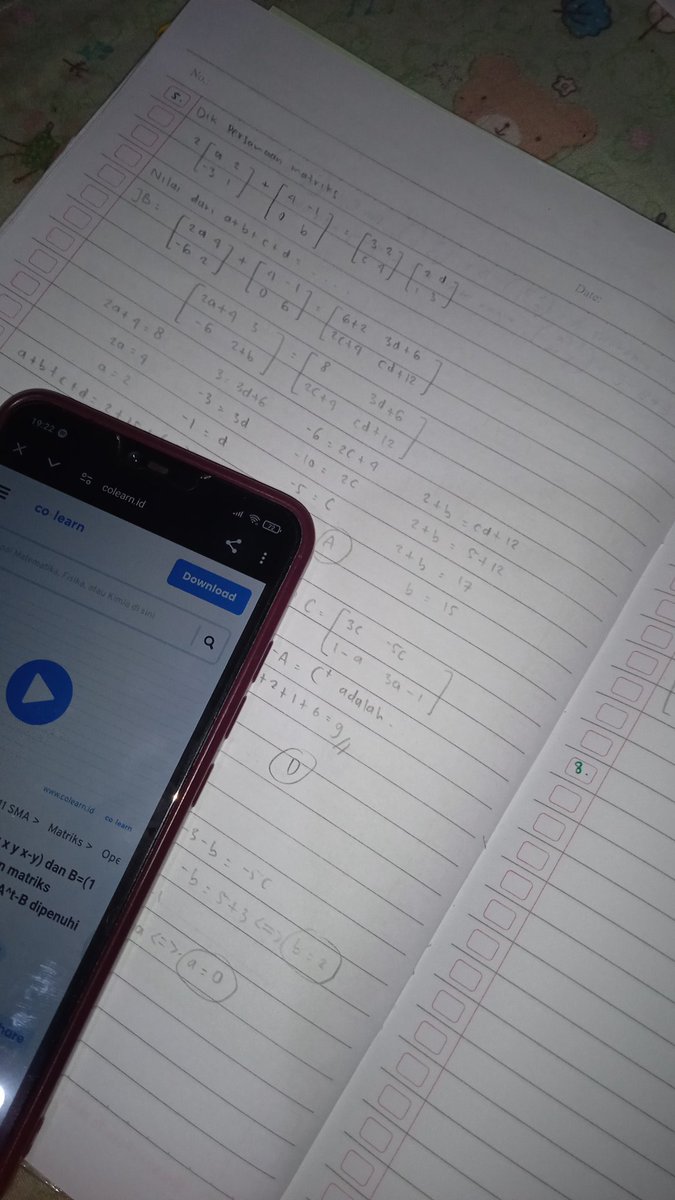 No:
Date:
5. Dik Persamaan matriks
2 [a 2 -3 1] + [4 -1 0 b] = [3 2 c 4] [2 d 1 3]
Nilai dari a+b+c+d = ....
JB: [2a 4 -6 2] + [4 -1 0 b] = [6+2 3d+6 2c+4 cd+12]
[2a+4 3 -6 2+b] = [8 3d+6 2c+4 cd+12]
2a+4=8 3=3d+6 -6=2c+4 2+b=cd+12
2a=4 -3=3d -10=2c 2+b=5+12
a=2 -1=d -5=c 2+b=17
b=15
a+b+c+d=2+15
A
C = [3c -5c 1-a 3a-1]
-A = C^t adalah -
+2+1+6=9
D
-3-b=-5c
-b=5+3<=> b=2
a<=> a=0
8.
19:22
72
colearn.id
co learn
Download
Matematika, Fisika, atau Kimia di sini
www.colearn.id co learn
11 SMA > Matriks > Ope
x y x-y) dan B=(1
n matriks
A^t-B dipenuhi
hare